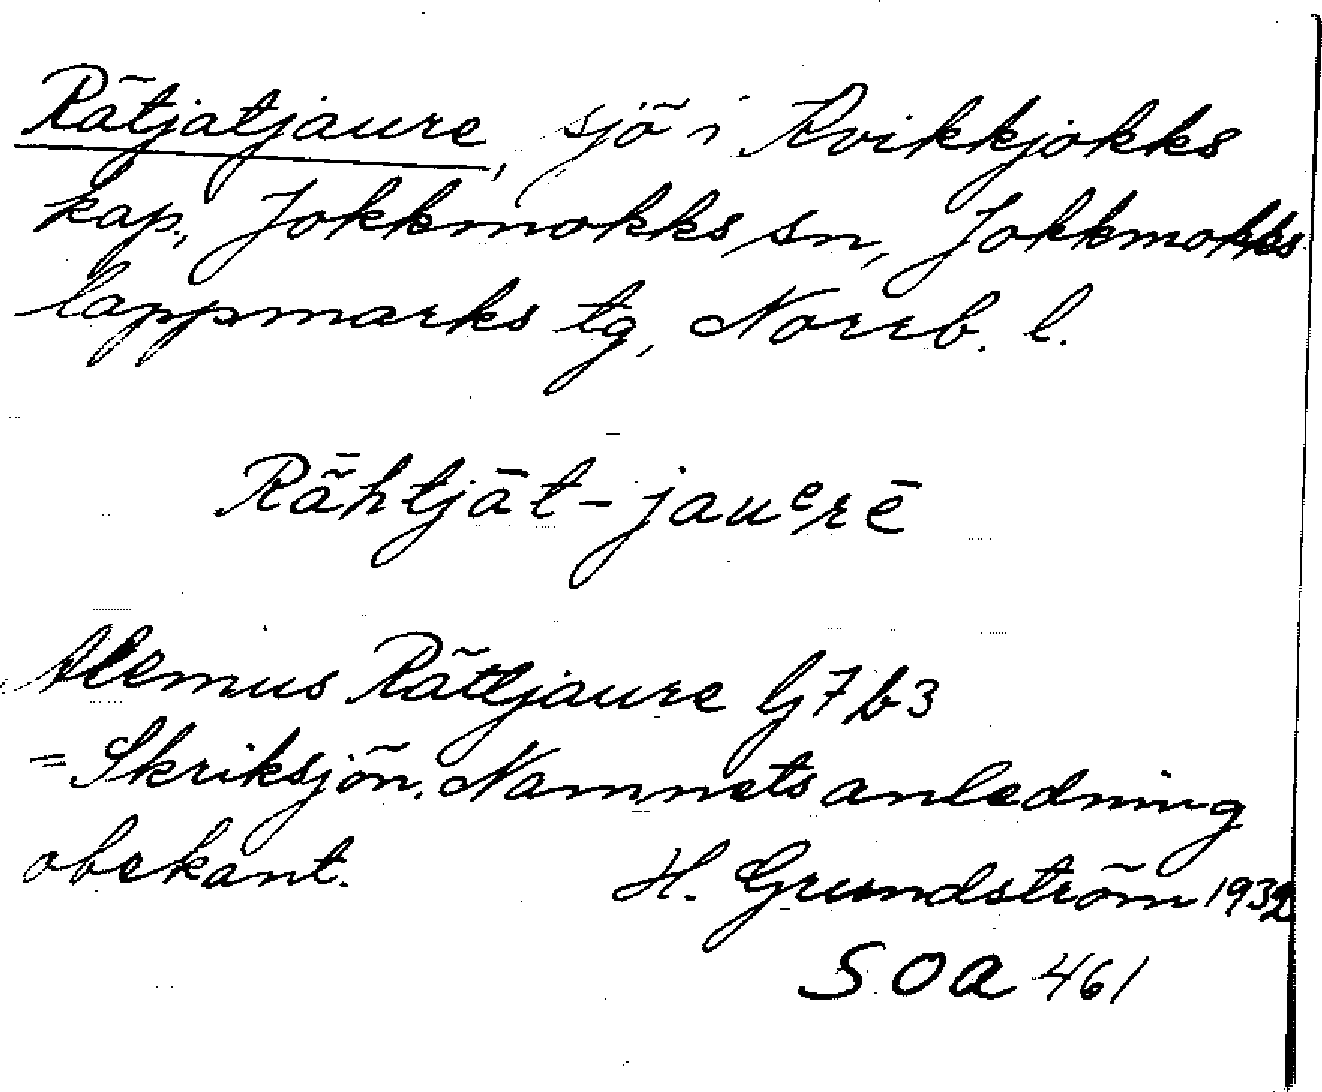 Rätjatjaure, sjö i Kvikkjokks
kap., Jokkmokks sn, Jokkmokks
lappmarks tg, Norrb. l.
Rǟhtjāt-jauᵉrē
Alemus Rättjaure G7b3
= Skriksjön. Namnets anledning
obekant.
H. Grundström 1932
SOA 461